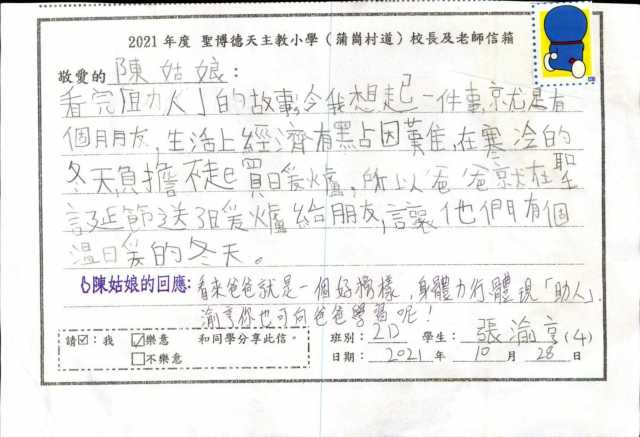 2021 年度 聖博德天主教小學（蒲崗村道）校長及老師信箱
敬愛的 陳姑娘：
看完「助人」的故事,令我想起一件事,就是有
個朋友,生活上經濟有點困難,在寒冷的
冬天,負擔不起買暖爐,所以爸爸就在聖
誕節送了暖爐給朋友,讓他們有個
溫暖的冬天。
陳姑娘的回應: 看來爸爸就是一個好榜樣，身體力行,體現「助人」.
渝亨你也可向爸爸學習呢！
請☑：我 ☑樂意 和同學分享此信。
□不樂意
班別： 2D 學生： 張渝亨 (4)
日期： 2021 年 10 月 28 日